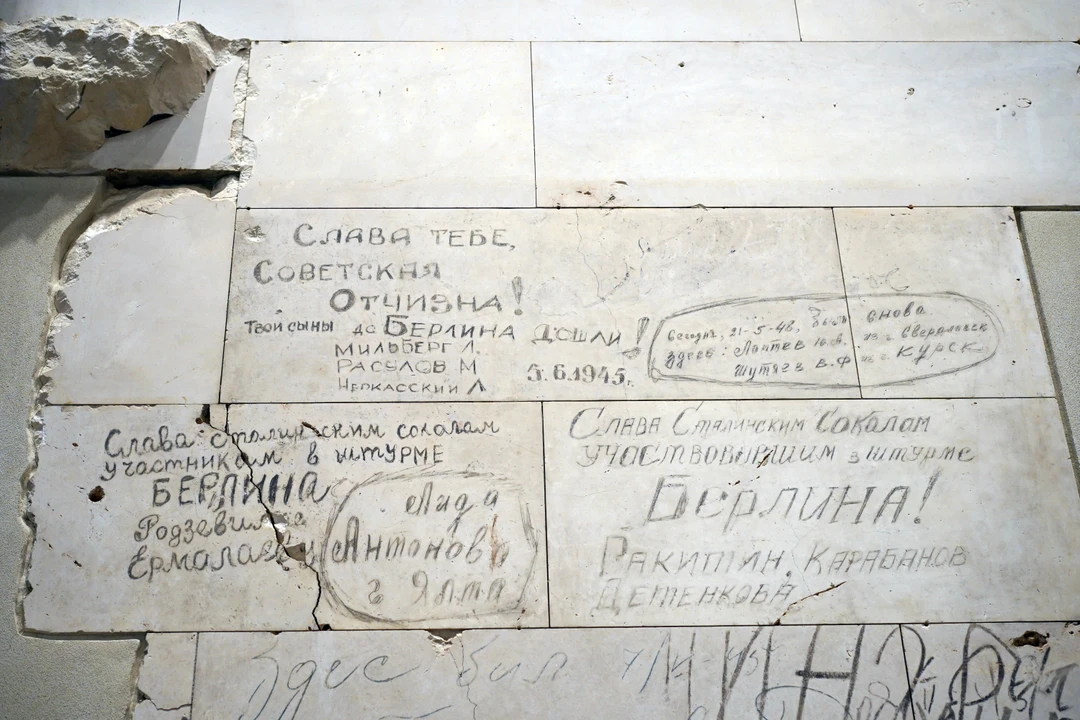 СЛАВА ТЕБЕ,
СОВЕТСКАЯ
ОТЧИЗНА!
ТВОИ СЫНЫ до БЕРЛИНА ДОШЛИ!
МИЛЬБЕРГ Л.
РАСУЛОВ М
ЧЕРКАССКИЙ Л
5.6.1945г.
Сегодня, 21-5-48, был снова
здесь: Лаптев Ю.А. из г. Свердловск
Шутяев В.Ф из г. КУРСК
Слава Сталинским соколам
участникам в ШТУРМЕ
БЕРЛИНА
Родзевилла
Ермолаеву
Лида
Антонова
г Ялта
СЛАВА СТАЛИНСКИМ СОКОЛАМ
УЧАСТВОВАВШИМ в ШТУРМЕ
БЕРЛИНА!
РАКИТИН, КАРАБАНОВ
ДЕТЕНКОВА
Здес был